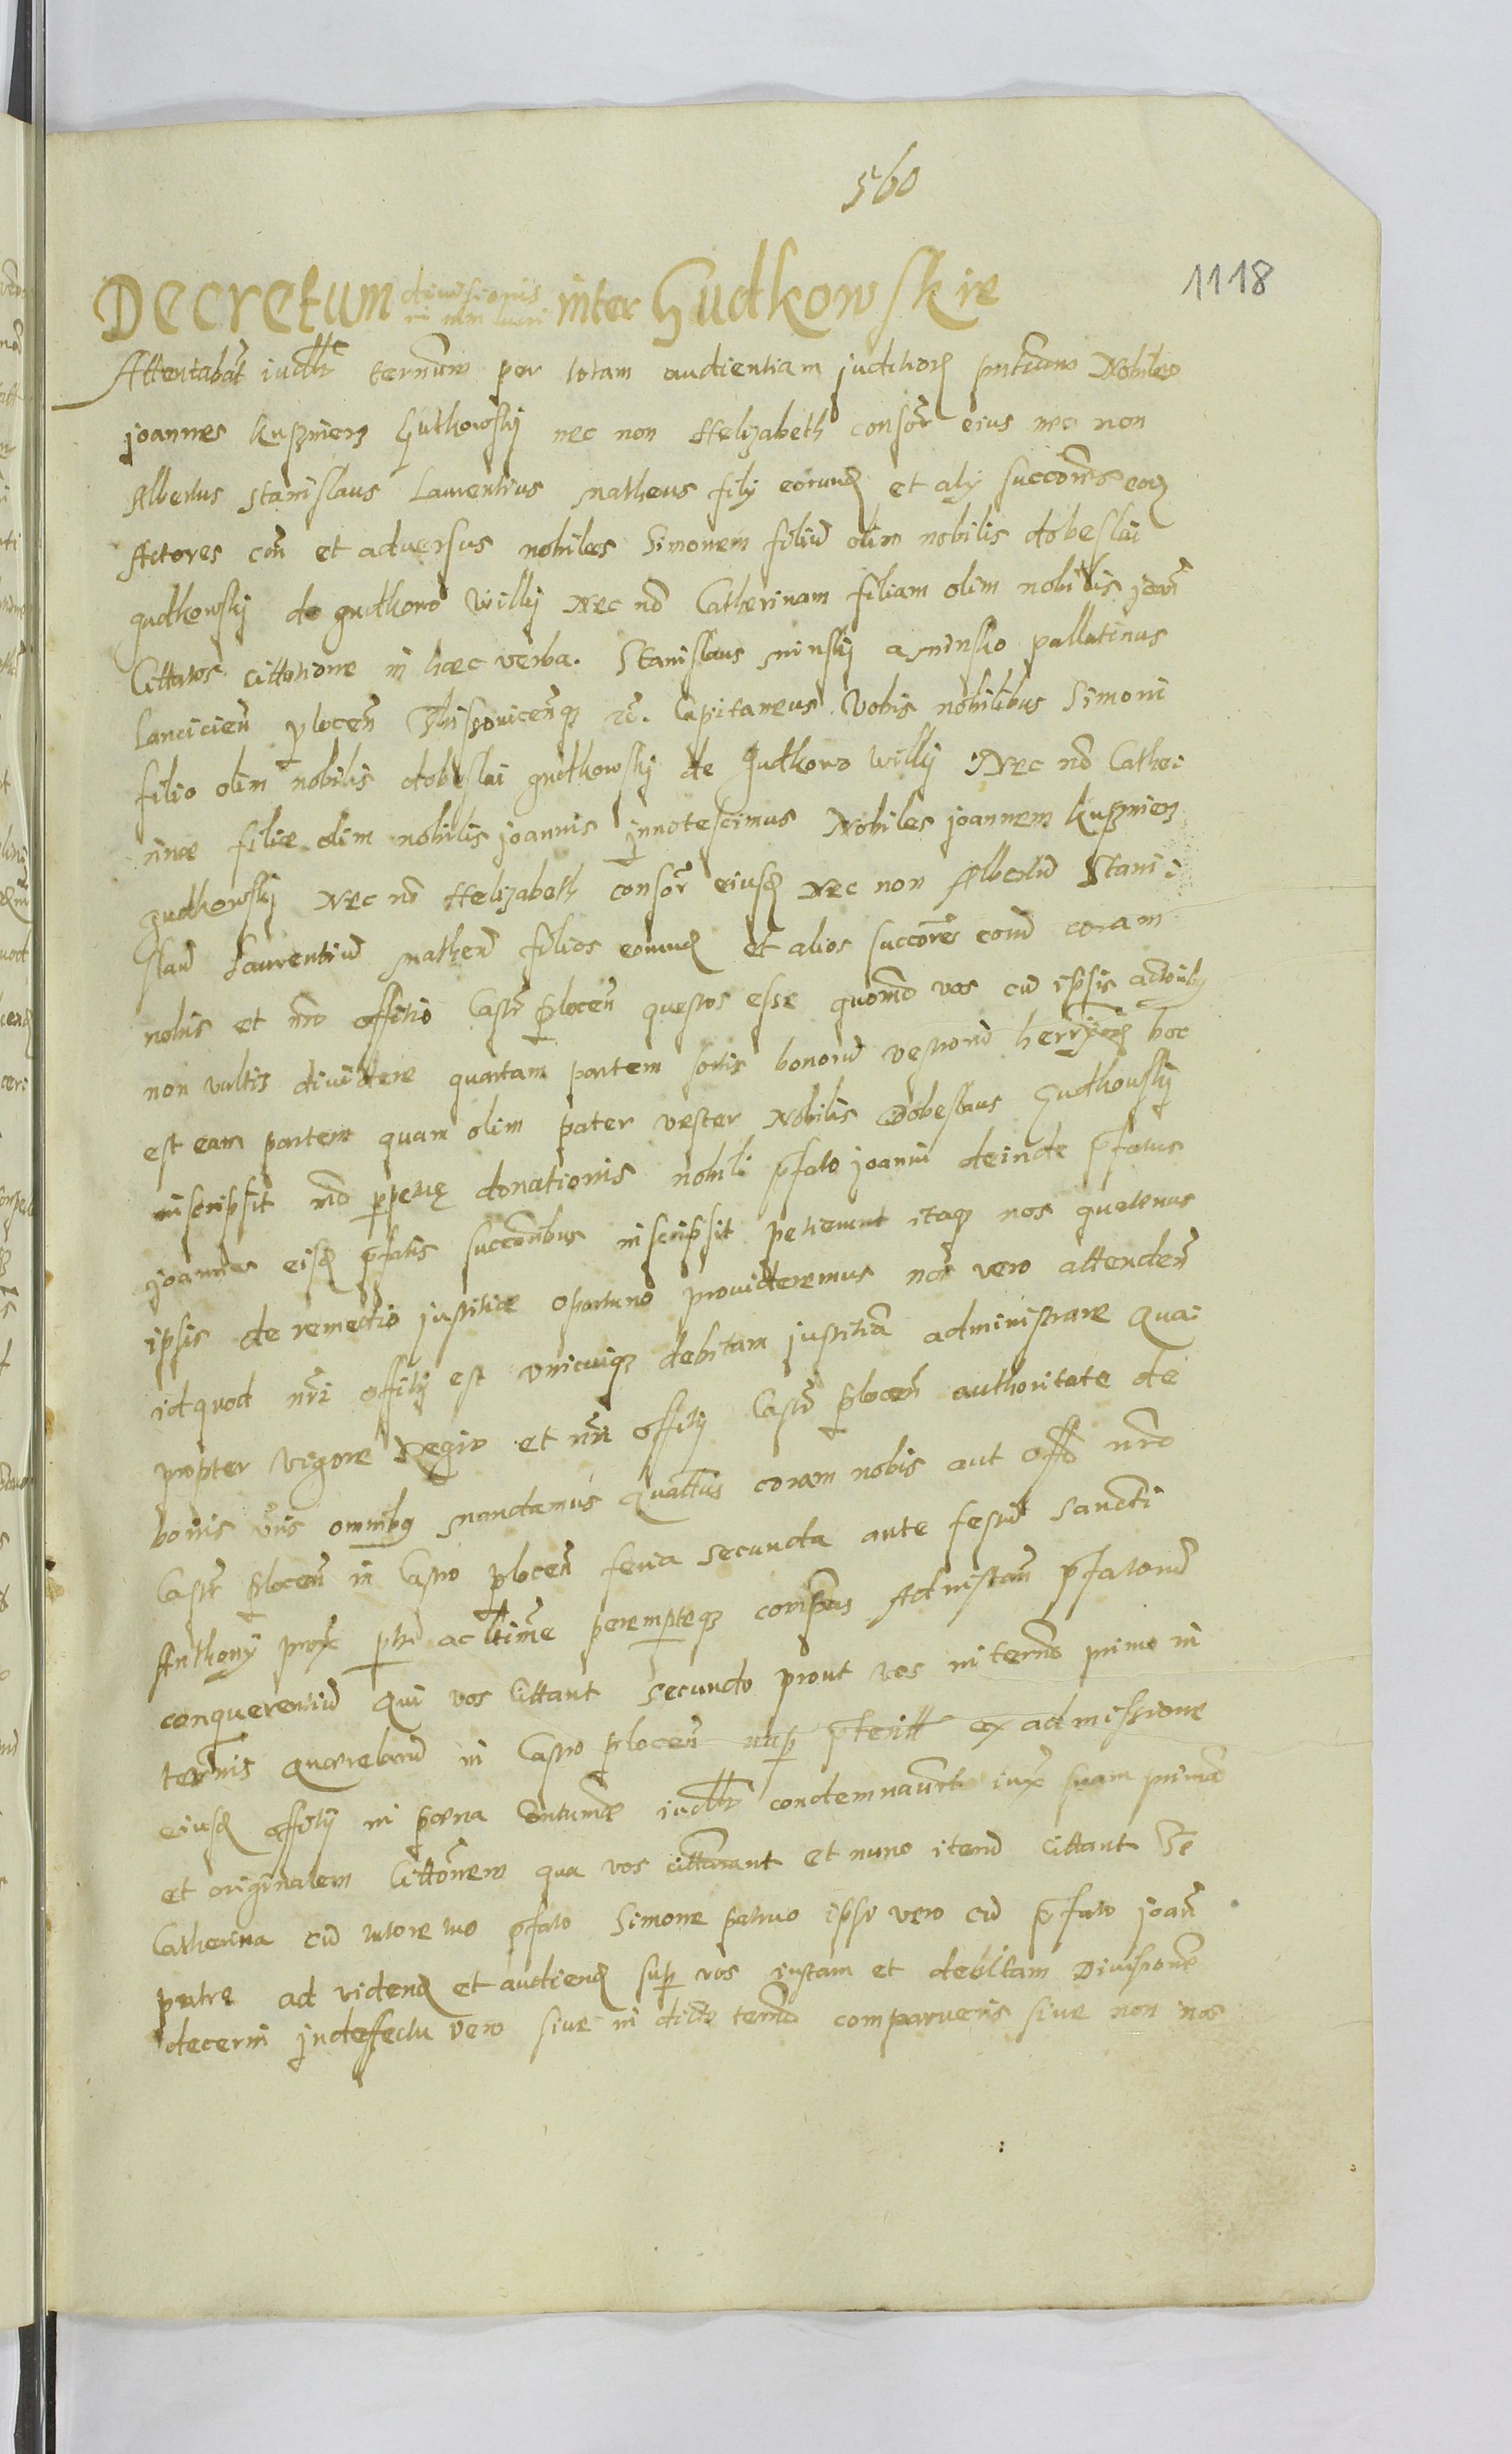 560
1118
Decretum divisionis in inter Gudkowskie
Attentabāt iudltr terminum per totam audientiam juditiorʒ pntium Nobiles
joannes kuszmierz Gutkowskij nec non Helizabeth consōr eius nec non
Albertus Stanislaus Laurentius Matheus filij eorundʒ et alij succōres eorʒ
Actores con et adversus nobiles Simonem filiū olim nobilis dobeslai
gudkowskij de gudkowo Willij Nec nō Catherinam filiam olim nobilis joān
Cittatos cittatione in hæc verba. Stanislaus Minskij a Minsko pallatinus
Lancicień plocen̄ Capitaneus Vobis nobilibus Simoni
filio olim nobilis dobeslai gudkowskij de Gudkowo Willij Nec nō Cathe:
rinæ filiæ olim nobilis joannis jnnotescimus Nobiles joannem kuszmierz
gudkowskij Nec nō Helizabeth consōr eiusdʒ Nec non Albertū Stani:
slaū Laurentiū Matheū filios eorundʒ et alios succōres eorū coram
nobis et nrō offitio Castr plocen̄ questos esse quomō vos cū ipsis actoribʒ
non vultis dividere quartam partem sortis bonorū vestrorū hoc
est eam partem quam olim pater vester Nobilis Dobeslaus Gudkowskij
inscripsit mō ppetuę donationis nobili pfato joanni deinde pfatus
joannes eisdʒ pfatis succōribus inscripsit petierunt itaqʒ nos quatenus
ipsis de remedio justitiæ oportuno provideremus nos vero attenden̄
id quod nrī offitij est unicuiqʒ debitam justitiā administrare Qua:
propter vigore Regio et nrī offitij Castr plocen̄ authoritate de
bonis vrīs omnibʒ mandamus Quatenus coram nobis aut offō nrō
Castr plocen̄ in Castro plocen̄ feria secunda ante festū Sancti
Anthonij prox ptū ac perempteqʒ compeas Ad instan̄ pfatorū
conquerentiū Qui vos Cittant Secundo prout vos in termō primo in
termis Quærelarū in Castro plocen̄ nup pterit ex admissione
eiusdʒ offitij in pœna Contumæ iudltr condemnaverūt iux suam primā
et originalem Cittōnem qua vos cittarunt et nunc iterū Cittant Te
Catherina cū tutore tuo pfato Simone patruo ipse vero cū pfato joān
patre ad videndʒ et audiendʒ sup vos iustam et debitam Divisionē
decerni jndefectu vero sive in dicto termō comparueris sive non nos